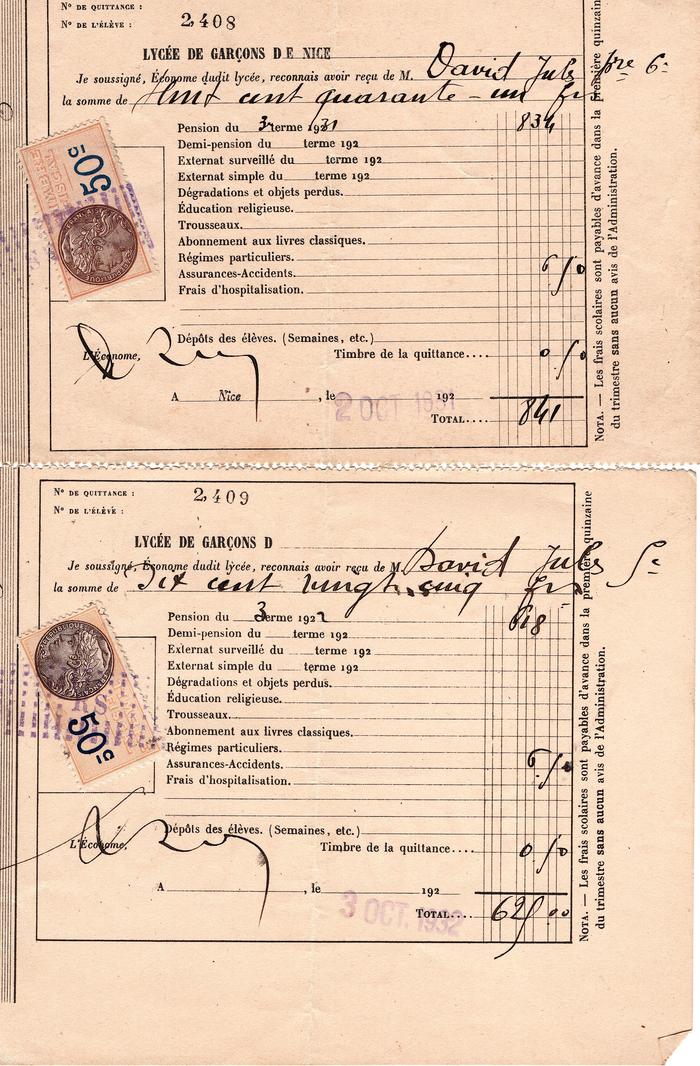 N° DE QUITTANCE :
2408
N° DE L'ÉLÈVE :
LYCÉE DE GARÇONS DE NICE
Je soussigné, Économe dudit lycée, reconnais avoir reçu de M. David Jules
la somme de Huit cent quarante-un frs
Pension du 3e terme 1931 834
Demi-pension du terme 192
Externat surveillé du terme 192
Externat simple du terme 192
Dégradations et objets perdus.
Éducation religieuse.
Trousseaux.
Abonnement aux livres classiques.
Régimes particuliers.
Assurances-Accidents. 6 50
Frais d'hospitalisation.
Dépôts des élèves. (Semaines, etc.)
L'Économe,
Timbre de la quittance.... 0 50
A Nice, le 192
2 OCT 1931
TOTAL.... 841
NOTA. — Les frais scolaires sont payables d'avance dans la première quinzaine
du trimestre sans aucun avis de l'Administration.
50c
N° DE QUITTANCE :
2409
N° DE L'ÉLÈVE :
LYCÉE DE GARÇONS D
Je soussigné, Économe dudit lycée, reconnais avoir reçu de M. David Jules
la somme de Six cent vingt-cinq frs
Pension du 3 terme 192 618
Demi-pension du terme 192
Externat surveillé du terme 192
Externat simple du terme 192
Dégradations et objets perdus.
Éducation religieuse.
Trousseaux.
Abonnement aux livres classiques.
Régimes particuliers.
Assurances-Accidents. 6 50
Frais d'hospitalisation.
Dépôts des élèves. (Semaines, etc.)
L'Économe,
Timbre de la quittance.... 0 50
A , le 192
3 OCT. 1932
TOTAL.... 625 00
NOTA. — Les frais scolaires sont payables d'avance dans la première quinzaine
du trimestre sans aucun avis de l'Administration.
50c